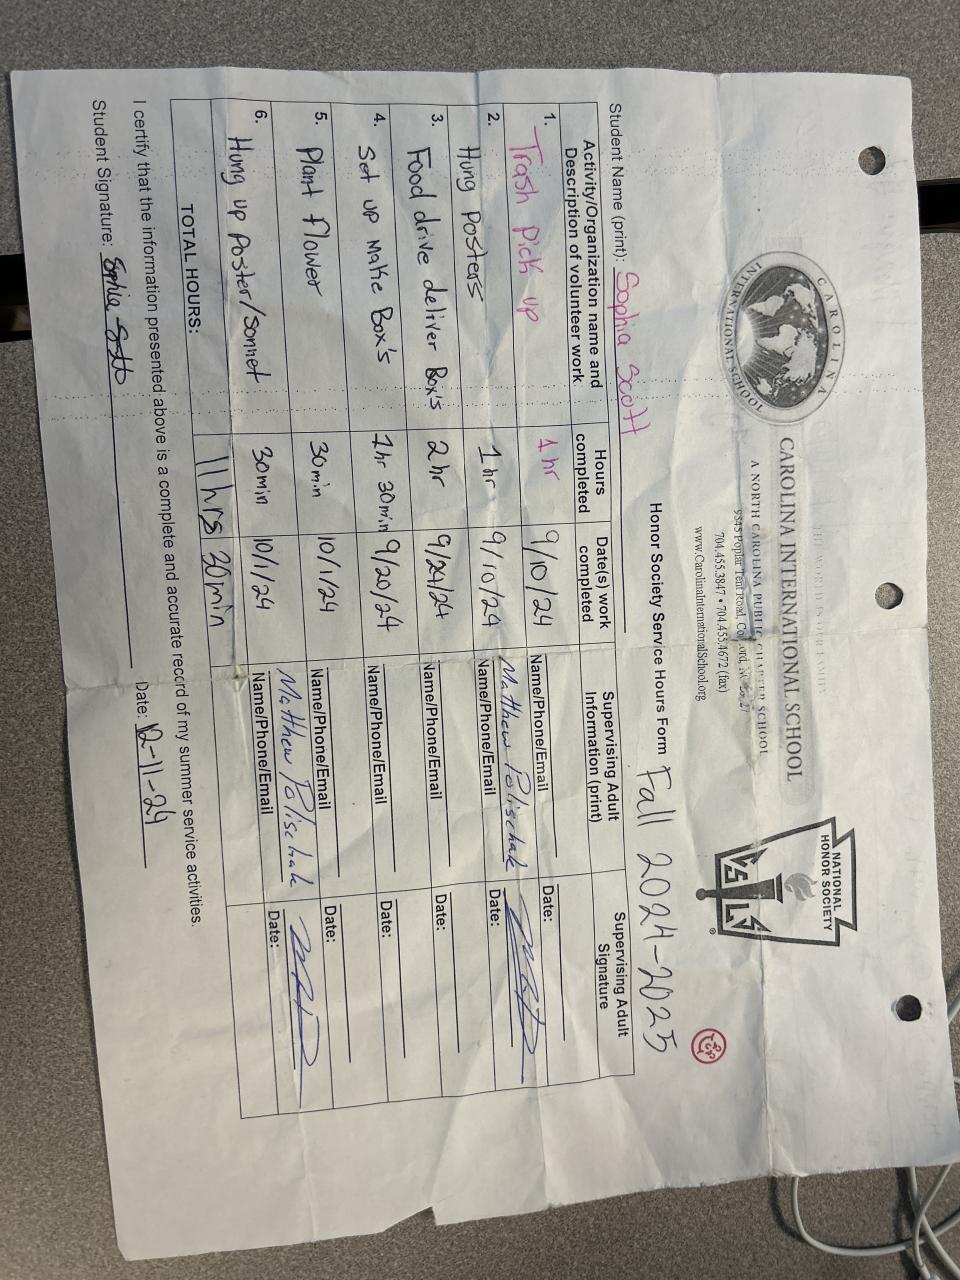 CAROLINA
INTERNATIONAL SCHOOL
CAROLINA INTERNATIONAL SCHOOL
A NORTH CAROLINA PUBLIC CHARTER SCHOOL
9545 Poplar Tent Road,
704.455.3847 • 704.455.4672 (fax)
www.CarolinaInternationalSchool.org
NATIONAL
HONOR SOCIETY
®
Honor Society Service Hours Form Fall 2024-2025
Student Name (print): Sophia Scott
Activity/Organization name and Description of volunteer work
Hours completed
Date(s) work completed
Supervising Adult Information (print)
Supervising Adult Signature
1. Trash Pick up 1 hr 9/10/24 Name/Phone/Email Matthew Polischak Date:
2. Hung Posters 1 hr 9/10/24 Name/Phone/Email Date:
3. Food drive deliver Box's 2 hr 9/24/24 Name/Phone/Email Date:
4. Set up make Box's 1hr 30min 9/20/24 Name/Phone/Email Date:
5. Plant flower 30min 10/1/24 Name/Phone/Email Matthew Polischak Date:
6. Hung up Poster/sonnet 30min 10/1/24 Name/Phone/Email Date:
TOTAL HOURS: 11hrs 30min
I certify that the information presented above is a complete and accurate record of my summer service activities.
Student Signature: Sophia Scott Date: 12-11-24